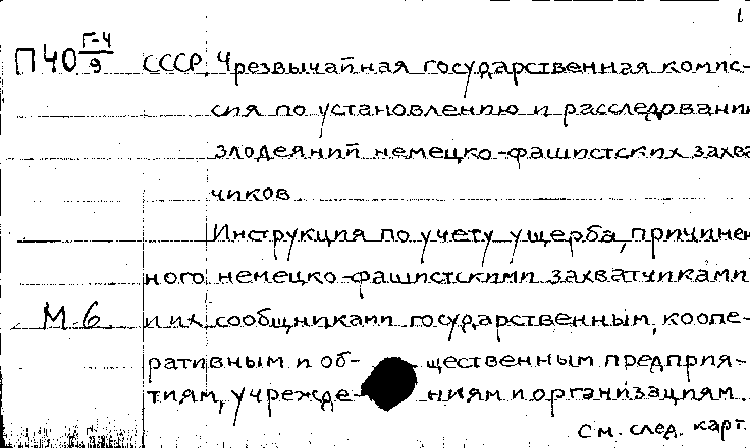 1
П40 Г-4/9 СССР. Чрезвычайная государственная комис-
сия по установлению и расследованию
злодеяний немецко-фашистских захва
чиков
Инструкция по учету ущерба, причинен
ного немецко-фашистскими захватчиками
М 6 и их сообщниками государственным, коопе-
ративным и об- щественным предприя-
тиям, учрежде- ниям и организациям.
См. след. карт.